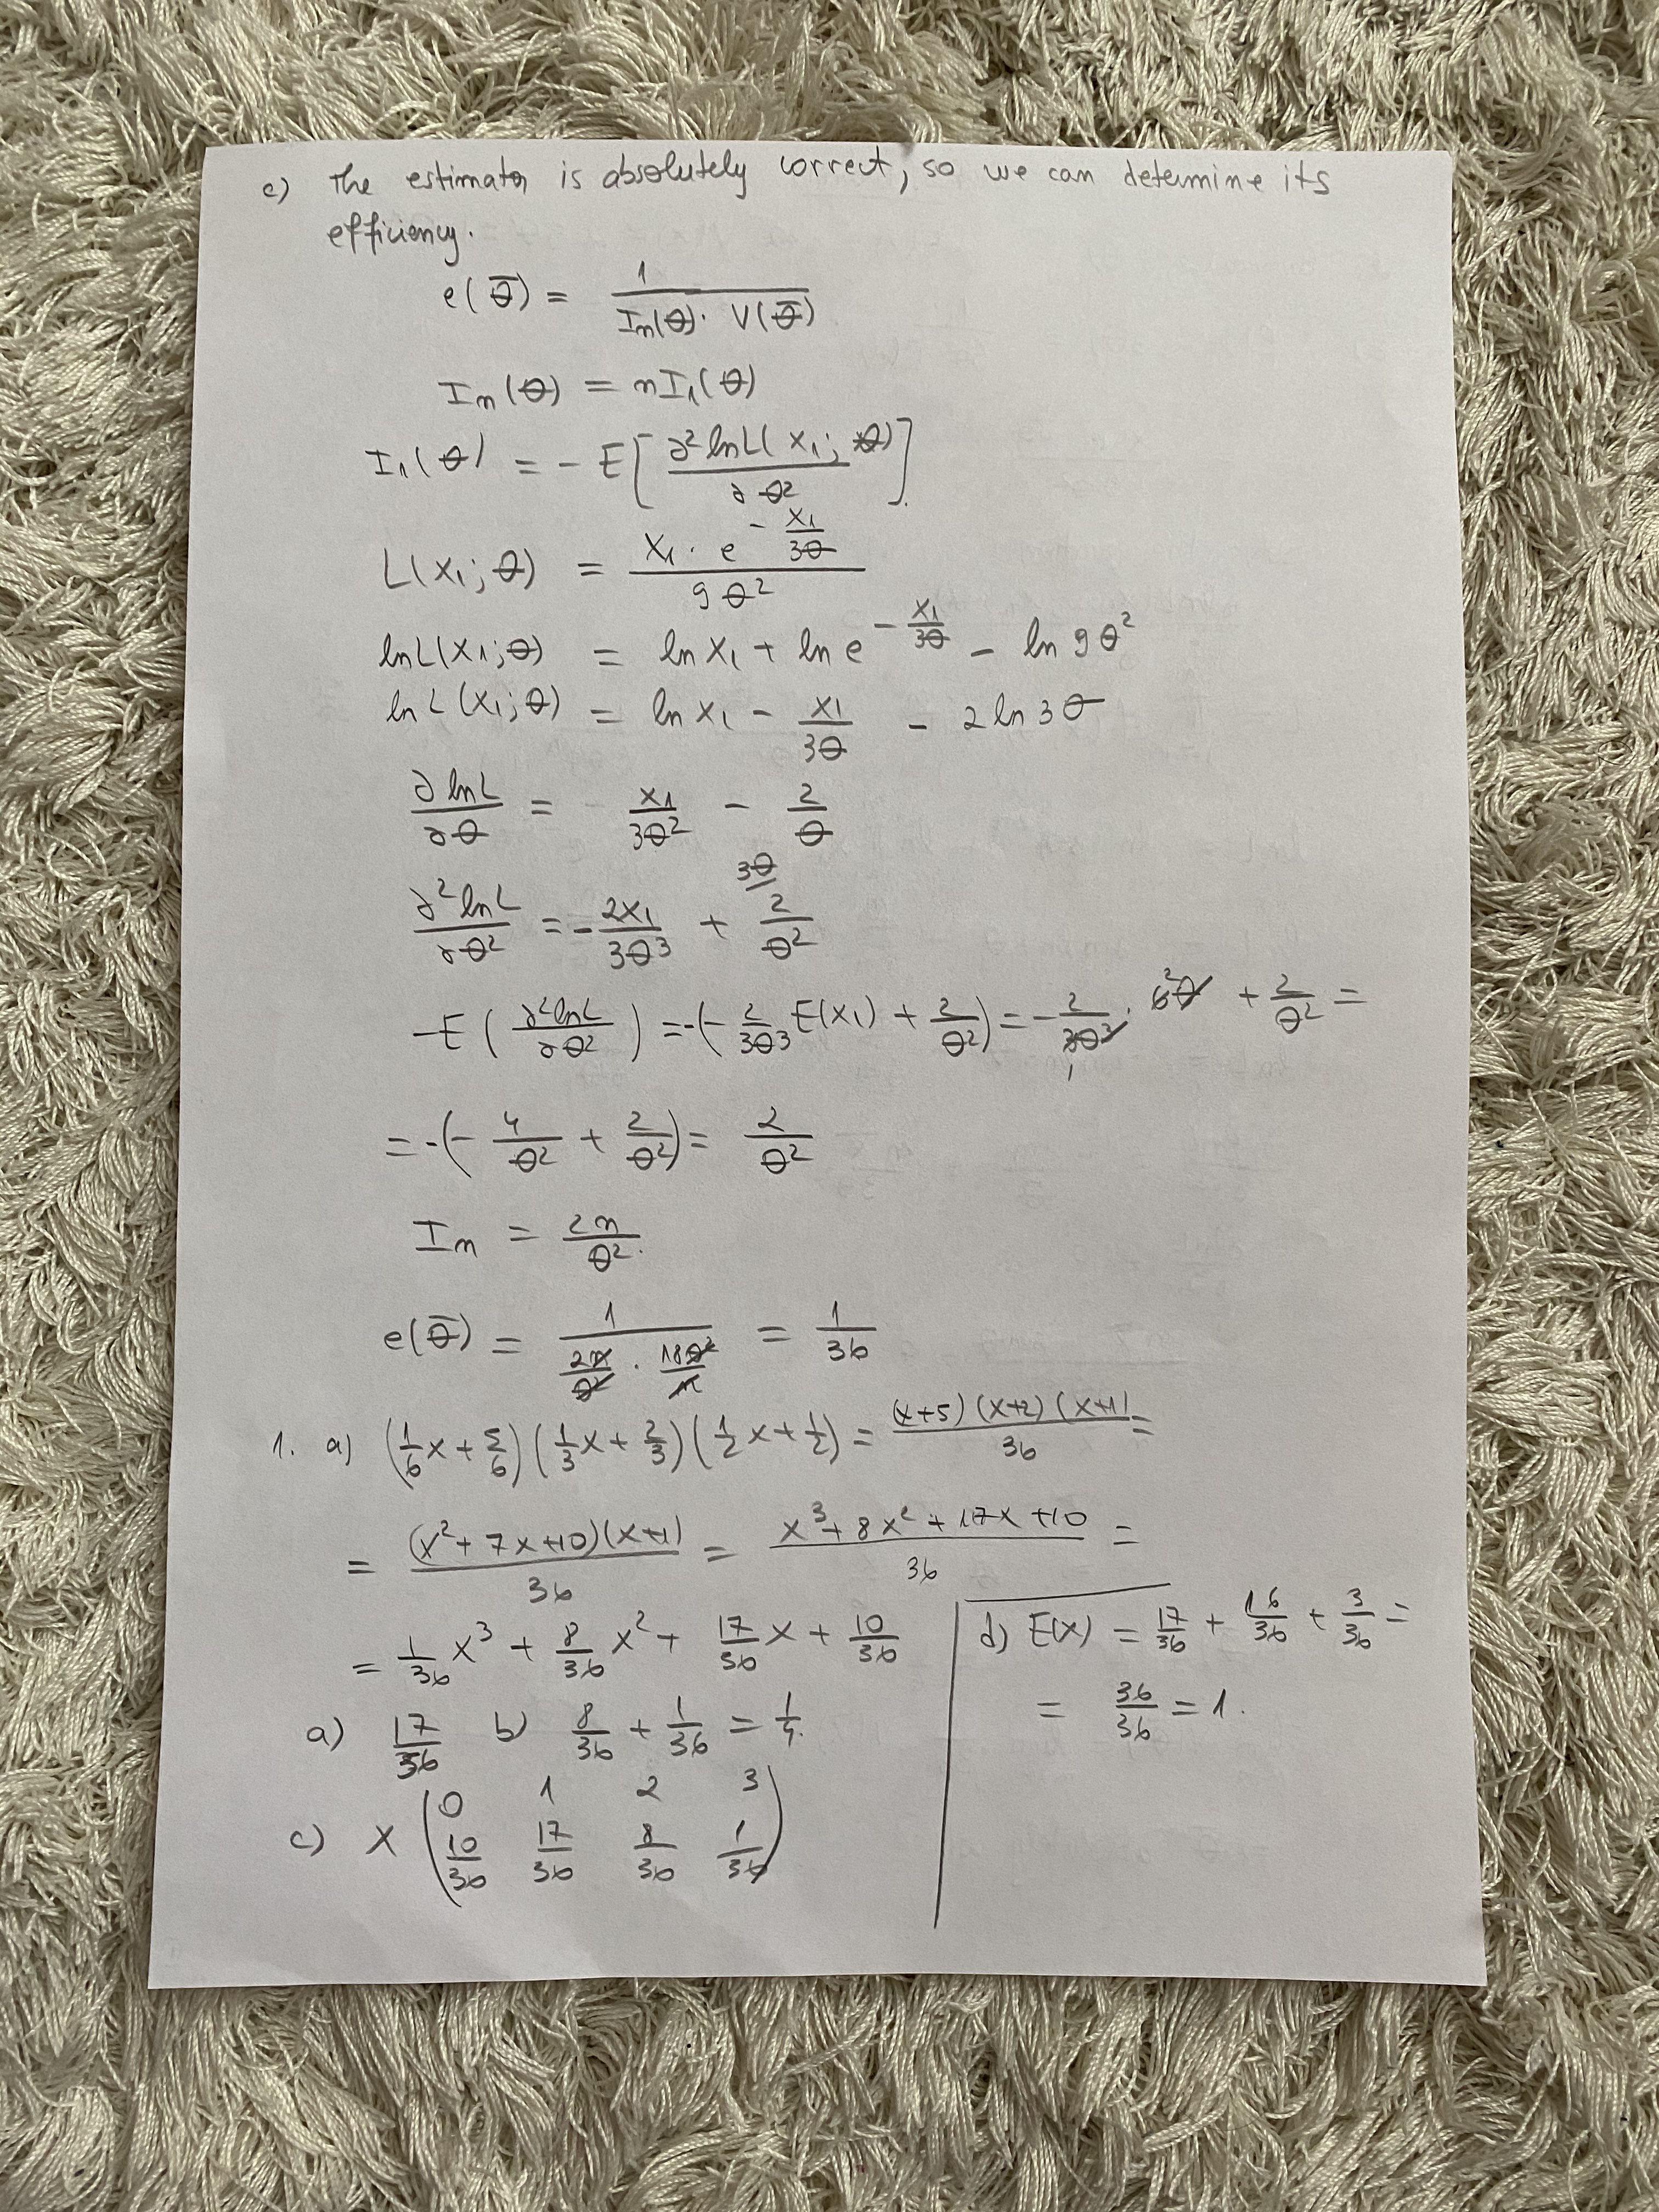 c) The estimator is absolutely correct, so we can determine its
efficiency.
e(θ̅) = 1 / (In(θ) · V(θ̅))
In(θ) = nI₁(θ)
I₁(θ) = - E[∂² ln L(x₁; θ) / ∂θ²]
L(x₁; θ) = x₁ · e^(-x₁/3θ) / 9θ²
ln L(x₁; θ) = ln x₁ + ln e^(-x₁/3θ) - ln 9θ²
ln L(x₁; θ) = ln x₁ - x₁/3θ - 2 ln 3θ
∂ ln L / ∂θ = x₁/3θ² - 2/θ
3θ
∂² ln L / ∂θ² = - 2x₁/3θ³ + 2/θ²
-E(∂² ln L / ∂θ²) = -(- 2/3θ³ E(x₁) + 2/θ²) = - 2/3θ³ · 6θ + 2/θ² =
= -(- 4/θ² + 2/θ²) = 2/θ²
In = 2n/θ².
e(θ̅) = 1 / (2n/θ² · 18θ²/n) = 1/36
1. a) (1/6 x + 5/6)(1/3 x + 2/3)(1/2 x + 1/2) = (x+5)(x+2)(x+1) / 36 =
= (x² + 7x + 10)(x+1) / 36 = x³ + 8x² + 17x + 10 / 36 =
= 1/36 x³ + 8/36 x² + 17/36 x + 10/36
a) 17/36 b) 8/36 + 1/36 = 1/4.
c) X ( 0 1 2 3
10/36 17/36 8/36 1/36 )
d) E(X) = 17/36 + 16/36 + 3/36 =
= 36/36 = 1.